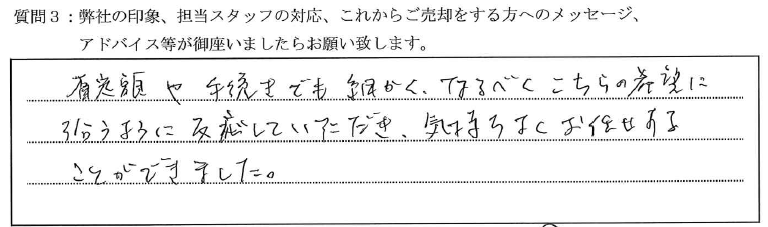 質問3：弊社の印象、担当スタッフの対応、これからご売却をする方へのメッセージ、
アドバイス等が御座いましたらお願い致します。
査定額や手続きでも細かく、なるべくこちらの希望に
沿うように反応していただき、気持ちよくお任せする
ことができました。